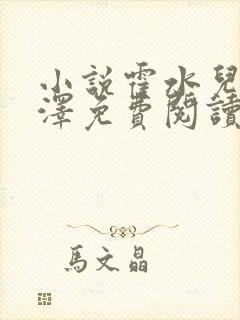 小說霍水兒
澤免費閱讀
馬文晶